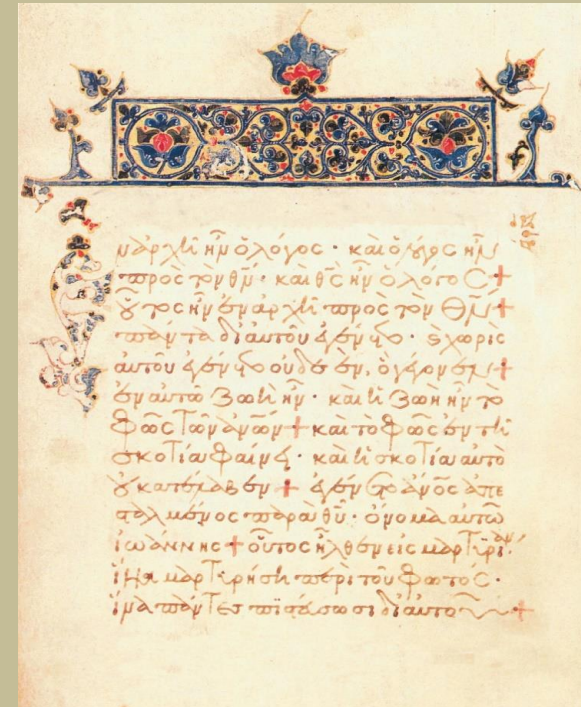 ν ἀρχῆ ἦν ὁ λόγος · καὶ ὁ λόγος ἦν
πρὸς τὸν θν · καὶ θς ἦν ὁ λόγος +
οὗτος ἦν ἐν ἀρχῆ πρὸς τὸν θν +
πάντα δι αὐτοῦ ἐγένετο · χωρὶς
αὐτοῦ ἐγένετο οὐδὲ ἓν, ὃ γέγονεν +
ἐν αὐτῶ ζωὴ ἦν · καὶ ἡ ζωὴ ἦν τὸ
φῶς τῶν ἀνων + καὶ τὸ φῶς ἐν τῆ
σκοτία φαίνει · καὶ ἡ σκοτία αὐτὸ
οὐ κατέλαβεν + ἐγένετο ἀνος ἀπε
σταλμένος παρὰ θυ · ὄνομα αὐτῶ
ἰωάννης + οὗτος ἦλθεν εἰς μαρτυρίαν ·
ἵνα μαρτυρήση περὶ τοῦ φωτός ·
ἵνα πάντες πιστεύσωσι δι αὐτοῦ +